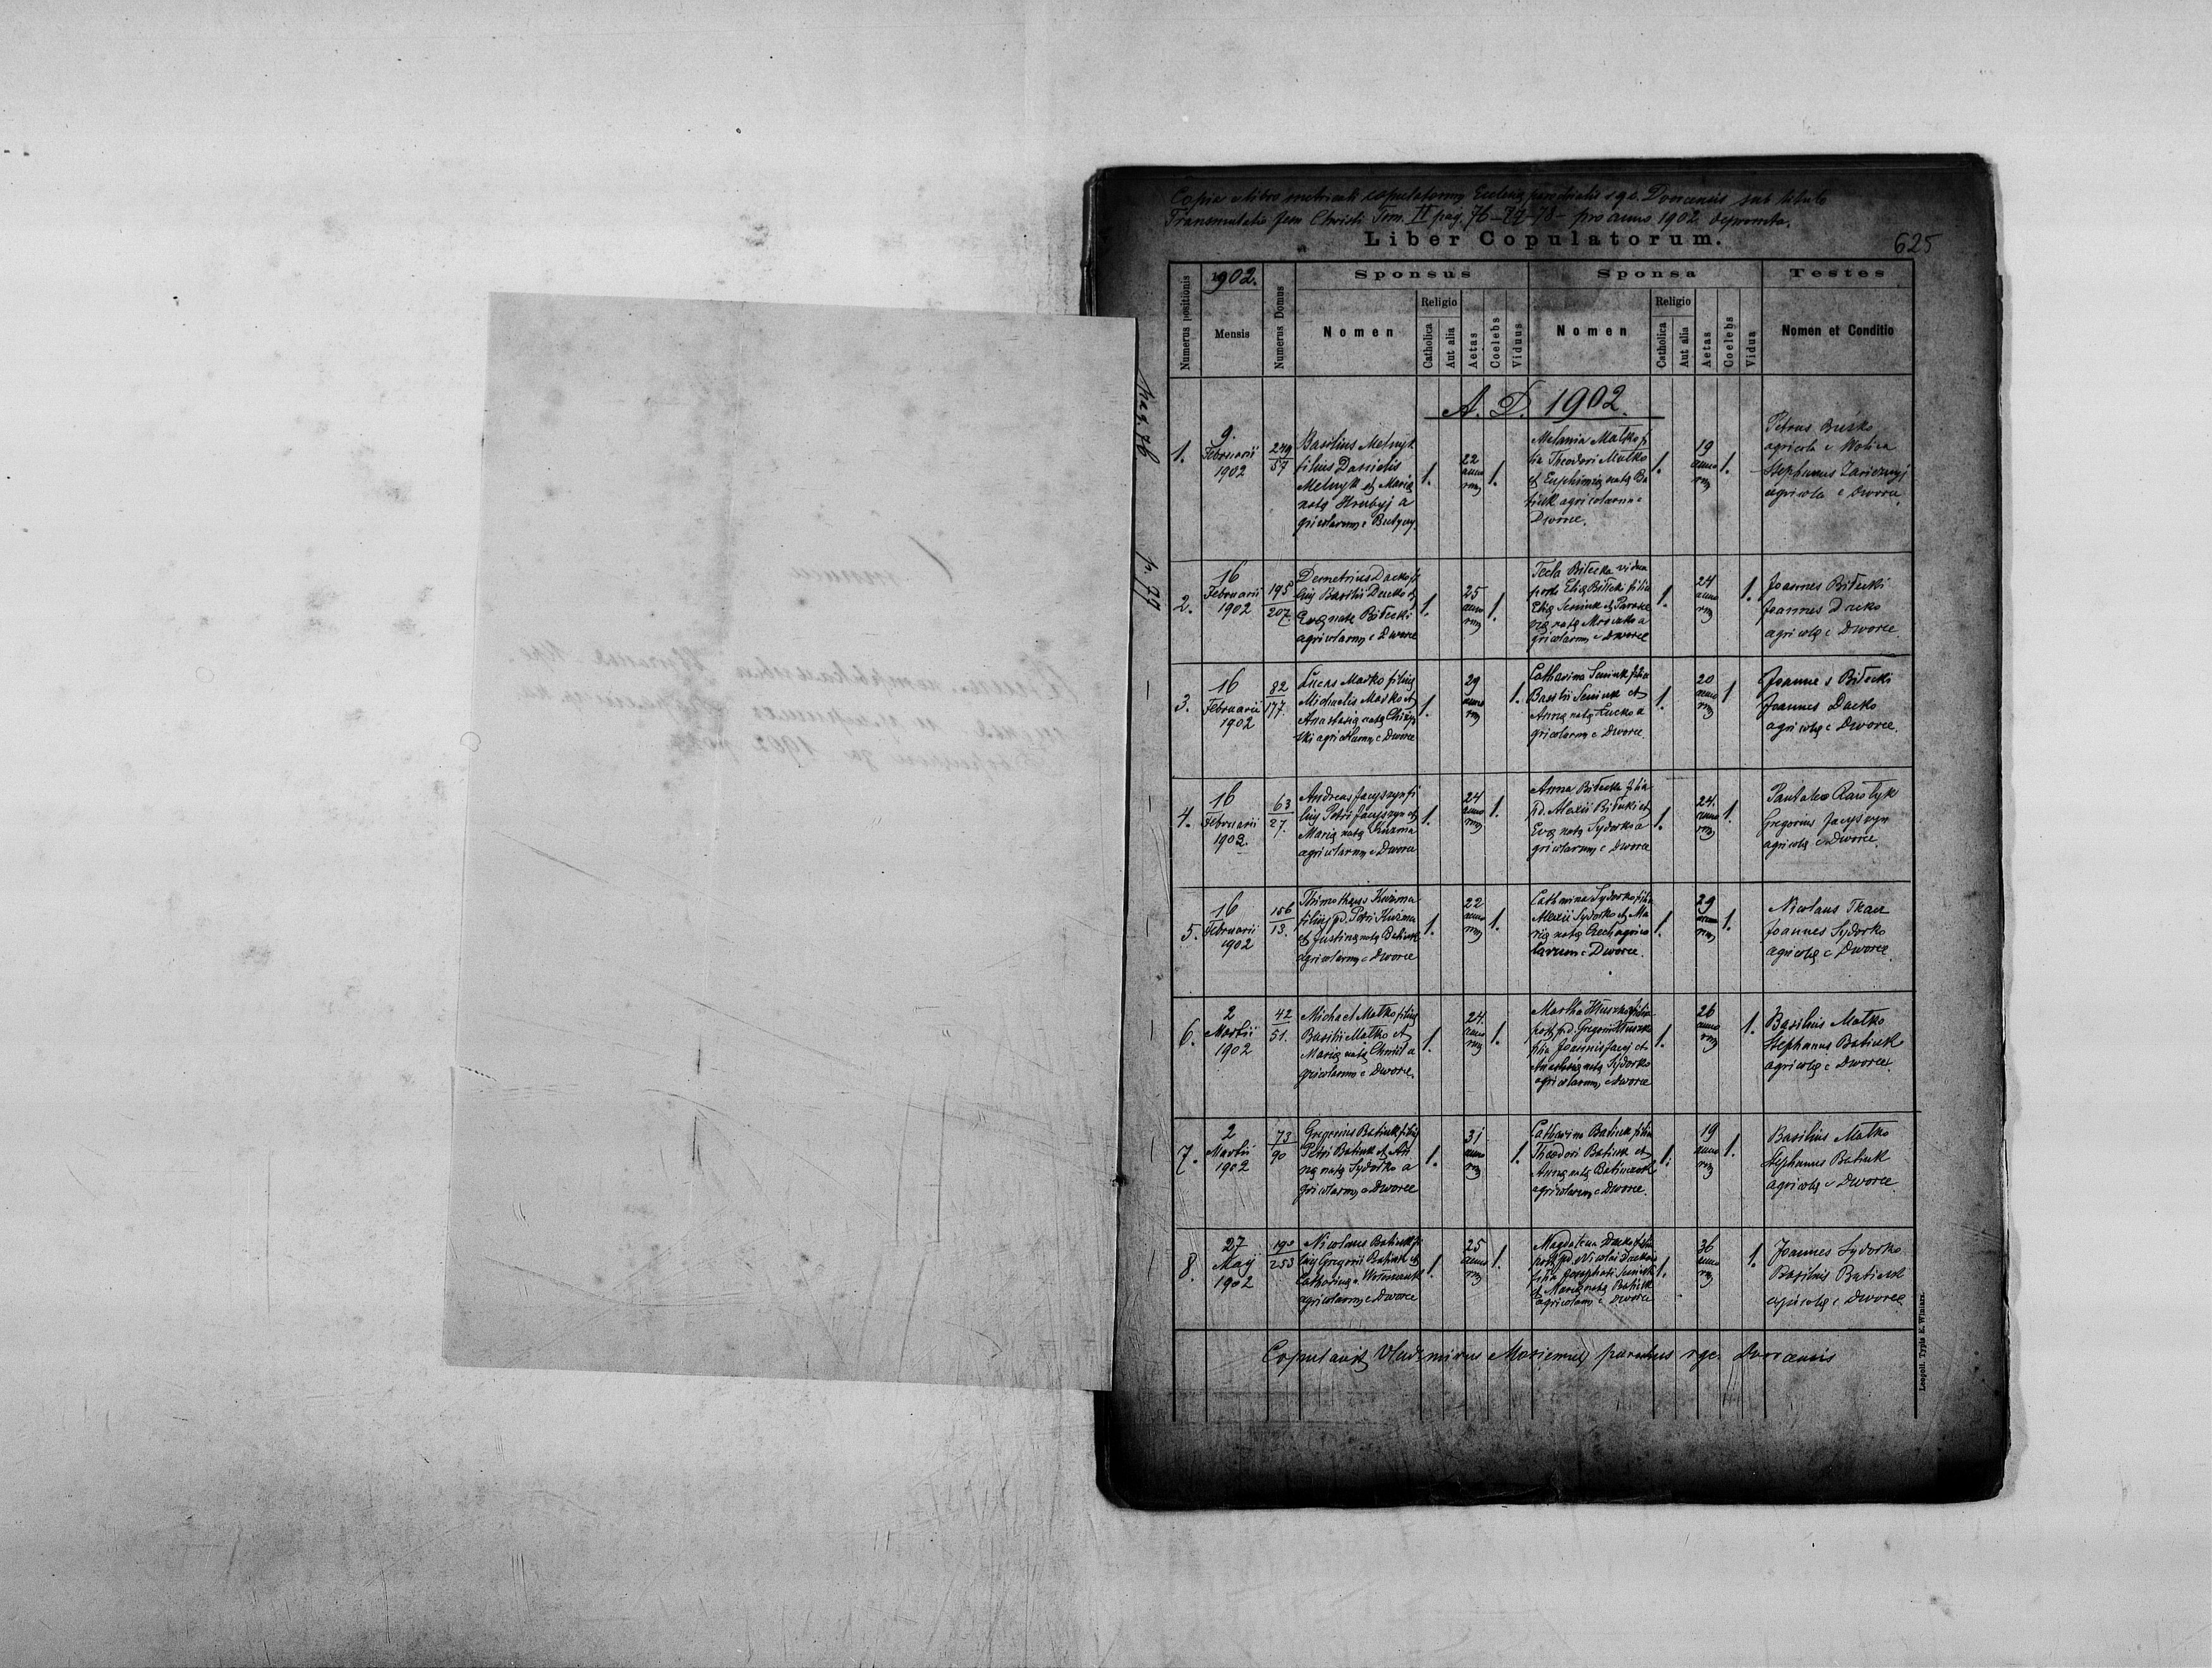 Copia e libro metricali copulatorum Ecclesiæ parochialis r. g. c. Dvorcensis sub titulo
Transmutatio Jesu Christi Tom. II pag. 76-77-78- pro anno 1902 deprompta.
Liber Copulatorum.
625
pag. 76
p. 77
Numerus positionis
1902.
Mensis
Numerus Domus
Sponsus
Nomen
Religio
Catholica
Aut alia
Aetas
Coelebs
Viduus
Sponsa
Nomen
Religio
Catholica
Aut alia
Aetas
Coelebs
Vidua
Testes
Nomen et Conditio
A. D. 1902.
1.
9.
Februarii
1902
249
57
Basilius Melnyk
filius Danielis
Melnyk et Mariæ
natæ Hrubyj a
gricolarum e Butyny.
1.
22
anno
rum
1.
Melania Matko fi
lia Theodori Matko
et Euphimiæ natæ Ba
tiuk agricolarum e
Dworce.
1.
19
anno
rum
1.
Petrus Buśko
agricola e Wolica
Stephanus Zaricznyj
agricola e Dworce.
2.
16
Februarii
1902
195
207.
Demetrius Dacko fi
lius Basilii Dacko et
Evæ natæ Biłecki
agricolarum e Dworce
1.
25
anno
rum
1.
Tecla Biłecka vidua
post Eliæ Biłecki filia
Eliæ Seniuk et Parasce
viæ natæ Mroczko a
gricolarum e Dworce
1.
24
anno
rum
1.
Joannes Biłecki
Joannes Dacko
agricolæ e Dworce.
3.
16
Februarii
1902
82
177.
Lucas Matko filius
Michaelis Matko et
Anastasiæ natæ
ski agricolarum e Dworce
1.
29
anno
rum
1.
Catharina Seniuk filia
Basilii Seniuk et
Annæ natæ Łucko a
gricolarum e Dworce.
1.
20
anno
rum
1
Joannes Biłecki
Joannes Dacko
agricolæ e Dworce.
4.
16
Februarii
1902.
63
27.
Andreas Jacyszyn fi
lius Petri Jacyszyn et
Mariæ natæ Kuzma
agricolarum e Dworce
1.
24
anno
rum
1.
Anna Biłecka filia
pd. Alexii Biłecki et
Evæ natæ Sydorko a
gricolarum e Dworce
1.
24.
anno
rum
1.
Gregorius Jacyszyn
agricolæ e Dworce.
5.
16
Februarii
1902
156
13.
Thimotheus Kuzma
filius pd. Petri Kuzma
et Justinæ natæ Batiuk
agricolarum e Dworce
1.
22
anno
rum
1.
Catharina Sydorko filia
Alexii Sydorko et Ma
riæ natæ Czech agrico
larum e Dworce.
1.
29
anno
rum
1.
Nicolaus Tkacz
Joannes Sydorko
agricolæ e Dworce.
6.
2
Martii
1902
42
51.
Michael Matko filius
Basilii Matko et
Mariæ natæ Chmil a
gricolarum e Dworce.
1.
24.
anno
rum
1.
post pd. Gregorii
filia Joannis Jacyj et
Anastasiæ natæ Sydorko
agricolarum e Dworce
1.
26
anno
rum
1.
Basilius Matko
Stephanus Batiuk
agricolæ e Dworce.
7.
2
Martii
1902
73
90
Gregorius Batiuk filius
Petri Batiuk et An
næ natæ Sydorko a
gricolarum e Dworce
1.
31
anno
rum
1.
Catharina Batiuk filia
Theodori Batiuk et
Annæ natæ
agricolarum e Dworce.
1.
19
anno
rum
1.
Basilius Matko
Stephanus Batiuk
agricolæ e Dworce
8.
27
Maÿ
1902
190
253
Nicolaus Batiuk fi
lius Gregorii Batiuk et
Catharinæ
agricolarum e Dworce
1.
25
anno
rum
1.
Magdalena Dacko
post pd. Nicolai Dacko
filia Josephati Seniuk
et Mariæ natæ Batiuk
agricolarum e Dworce
1.
36
anno
rum
1.
Joannes Sydorko
Basilius Batiuk
agricolæ e Dworce.
Copulavit Vladimirus parochus rgc. Dvorcensis
Leopoli. Typis E. Winiarz.